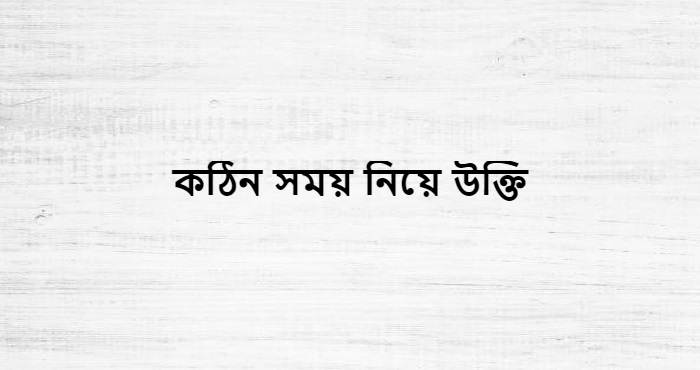 কঠিন সময় নিয়ে উক্তি